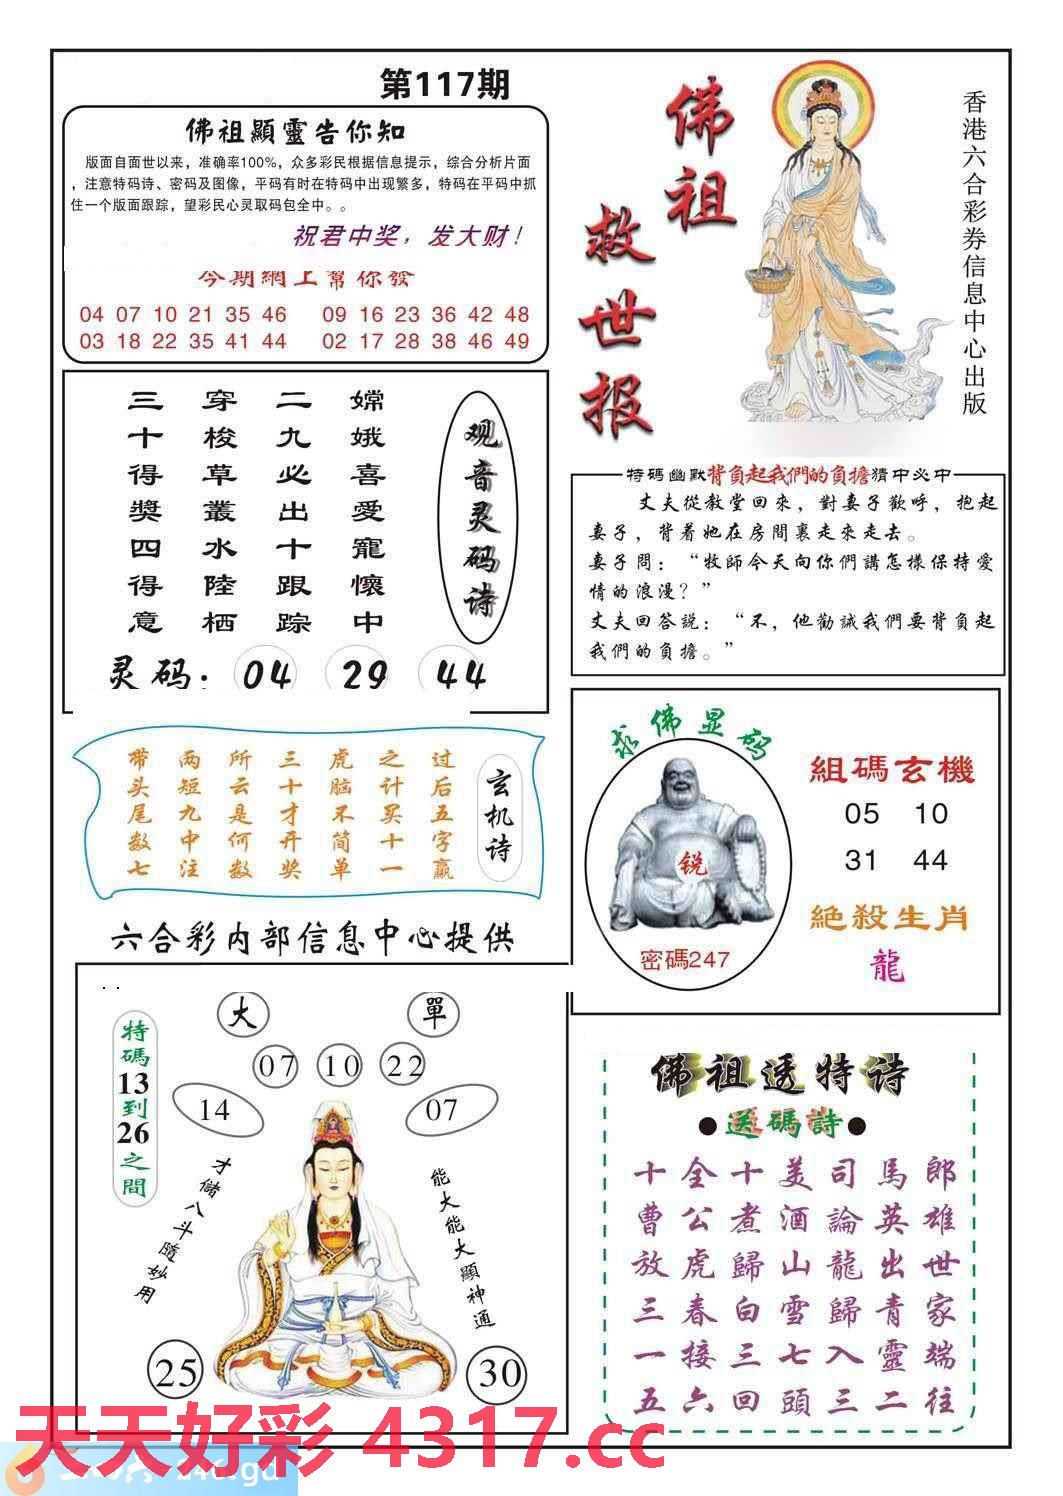 第117期
佛祖顯靈告你知
版面自面世以来，准确率100%，众多彩民根据信息提示，综合分析片面
，注意特码诗、密码及图像，平码有时在特码中出现繁多，特码在平码中抓
住一个版面跟踪，望彩民心灵取码包全中。。
祝君中奖，发大财！
今期網上幫你發
04 07 10 21 35 46 09 16 23 36 42 48
03 18 22 35 41 44 02 17 28 38 46 49
佛祖
救世报
香港六合彩券信息中心出版
观音灵码诗
嫦娥喜愛寵懷中
二九必出十跟踪
穿梭草叢水陸栖
三十得獎四得意
灵码：04 29 44
特碼幽默背負起我們的負擔猜中必中
丈夫從教堂回來，對妻子歡呼，抱起
妻子，背着她在房間裏走來走去。
妻子問：“牧師今天向你們講怎樣保持愛
情的浪漫？”
丈夫回答説：“不，他勸誡我們要背負起
我們的負擔。”
玄机诗
过后五字赢
之计买十一
虎脑不简单
三十才开奖
所云是何数
两短九中注
带头尾数七
求佛显码
锐
密碼247
組碼玄機
05 10
31 44
絕殺生肖
龍
六合彩内部信息中心提供
特碼13到26之間
大 單
07 10 22
14 07
才儲八斗隨妙用
能大能大顯神通
25 30
佛祖透特诗
●送碼詩●
十全十美司馬郎
曹公煮酒論英雄
放虎歸山龍出世
三春白雪歸青家
一接三七入靈端
五六回頭三二往
天天好彩 4317.cc
246.gd